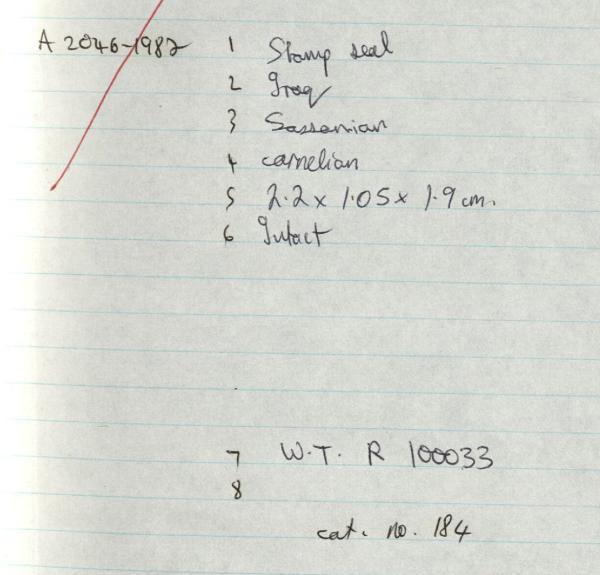 A 2046-1982 1 Stamp seal
2 Iraq
3 Sassanian
4 carnelian
5 2.2 x 1.05 x 1.9 cm.
6 Intact
7 W.T. R 100033
8
cat. no. 184